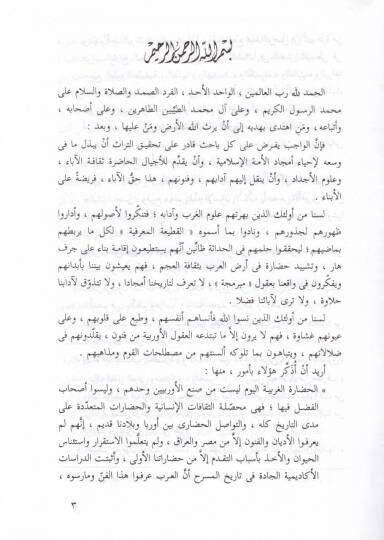 بسم الله الرحمن الرحيم
الحمد لله رب العالمين ، الواحد الأحد ، الفرد الصمد والصلاة والسلام على
محمد الرسول الكريم ، وعلى آل محمد الطيّبين الطاهرين ، وعلى أصحابه ،
وأتباعه، ومَن اهتدى بهديه إلى أنْ يرث الله الأرض ومَنْ عليها ، وبعد :
فإنّ الواجب يفرض على كل باحث قادر على تحقيق التراث أنْ يبذل ما فى
وسعه لإحياء أمجاد الأمة الإسلامية ، وأنْ يقدّم للأجيال الحاضرة ثقافة الآباء ،
وعلوم الأجداد ، وأنْ ينقل إليهم آدابهم ، وفنونهم ، هذا حقّ الآباء ، فريضةً على
الأبناء .
لسنا من أولئك الذين بهرتهم علوم الغرب وآدابه ؛ فتنكّروا لأصولهم ، وأداروا
ظهورهم لجذورهم ، ونادوا بما أسموه « القطيعة المعرفية » لكل ما يربطهم
بماضيهم؛ ليحققوا حلمهم فى الحداثة ظانّين أنّهم يستطيعون إقامة بناء على جرف
هار ، وتشييد حضارة فى أرض العرب بثقافة العجم ، فهم يعيشون بيننا بأبدانهم
ويفكّرون فى واقعنا بعقول « مبرمجة » ، لا تعرف لتاريخنا أمجادا ، ولا تتذوّق لآدابنا
حلاوة ، ولا ترى لآبائنا فضلا .
لسنا من أولئك الذين نسوا الله فأنساهم أنفسهم ، وطبع على قلوبهم ، وعلى
عيونهم غشاوة ، فهم لا يرون إلاّ ما تبتدعه العقول الأوربية من فنون ، يقلّدونهم فى
ضلالاتهم ، ويتباهون بما تلوكه ألسنتهم من مصطلحات القوم ومذاهبهم .
أريد أنْ أُذَكّر هؤلاء بأمور ، منها :
* الحضارة الغربية اليوم ليست من صنع الأوربيين وحدهم ، وليسوا أصحاب
الفضل فيها ؛ فهى محصّلة الثقافات الإنسانية والحضارات المتعدّدة على
مدى التاريخ كله ، والتواصل الحضارى بين أوربا وبلادنا قديم ، إنّهم لم
يعرفوا الأديان والفنون إلاّ من مصر والعراق ، ولم يتعلّموا الاستقرار واستئناس
الحيوان والأخذ بأسباب التقدم إلاّ من حضاراتنا الأولى ، وأثبتت الدراسات
الأكاديمية الجادة فى تاريخ المسرح أنّ العرب عرفوا هذا الفنّ ومارسوه ،
٣